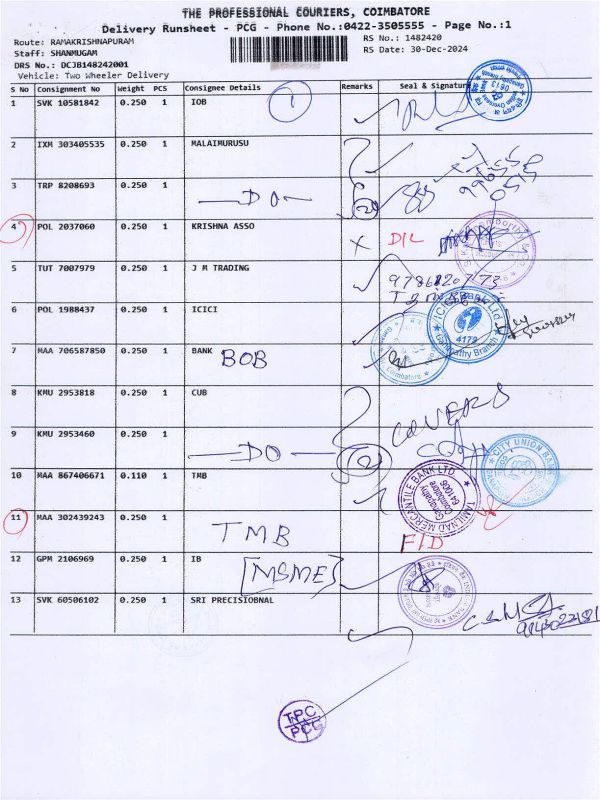 THE PROFESSIONAL COURIERS, COIMBATORE
Delivery Runsheet - PCG - Phone No.:0422-3505555 - Page No.:1
Route: RAMAKRISHNAPURAM
RS No.: 1482420
Staff: SHANMUGAM
RS Date: 30-Dec-2024
DRS No.: DCJB148242001
Vehicle: Two Wheeler Delivery
S No Consignment No Weight PCS Consignee Details Remarks Seal & Signature
1 SVK 10581842 0.250 1 IOB 1
2 IXM 303405535 0.250 1 MALAIMURUSU
3 TRP 8208693 0.250 1 DO 20
4 POL 2037060 0.250 1 KRISHNA ASSO X D/L
5 TUT 7007979 0.250 1 J M TRADING
6 POL 1988437 0.250 1 ICICI
ICICI Bank Ltd. 4179 Ganapathy Branch
7 MAA 706587850 0.250 1 BANK BOB
Coimbatore
8 KMU 2953818 0.250 1 CUB
COVERS
9 KMU 2953460 0.250 1 DO 2
CITY UNION BANK
10 MAA 867406671 0.110 1 TMB
TAMILNAD MERCANTILE BANK LTD Ganapathy Coimbatore 641006
11 MAA 302439243 0.250 1 TMB FID
12 GPM 2106969 0.250 1 IB [MSME]
13 SVK 60506102 0.250 1 SRI PRECISIOBNAL
TPC
PCG